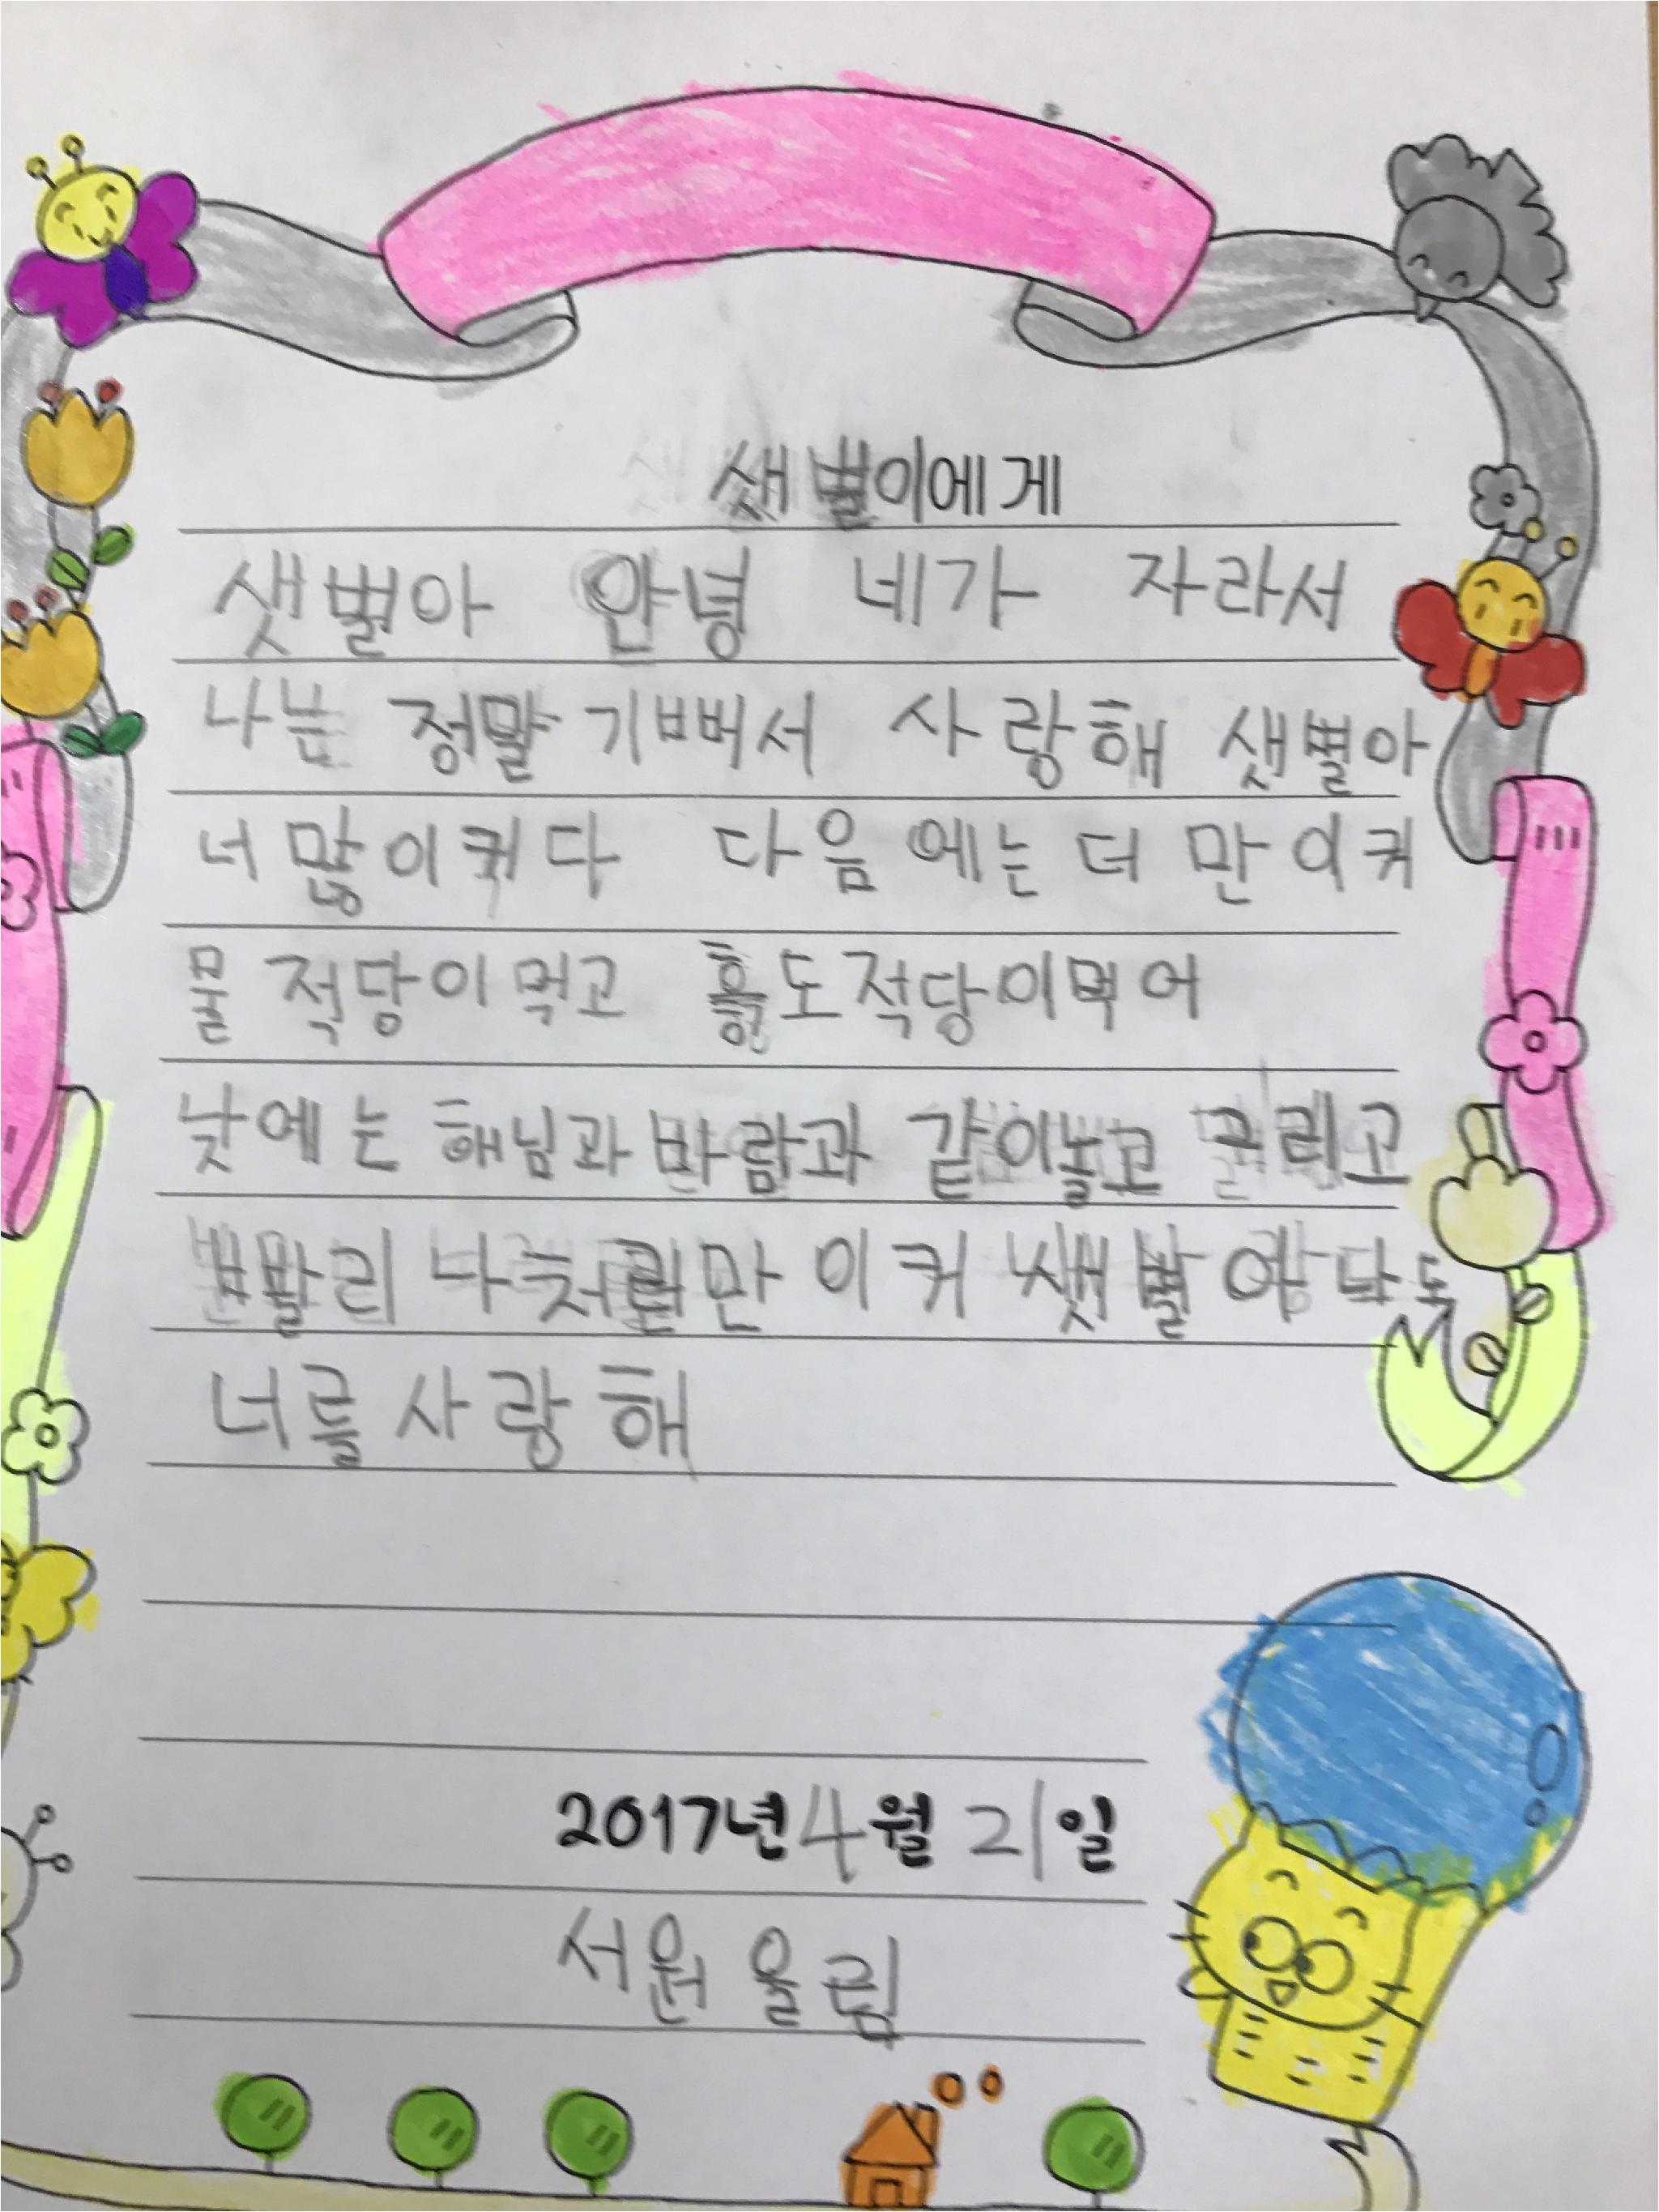 쌧별이에게
샛별아 안녕 네가 자라서
나는 정말 기뻐서 사랑해 샛별아
너 많이커다 다음에는 더 만이커
물 적당이먹고 흙도적당이먹어
낮에는 해님과바람과 같이놀고 그리고
빨리 나처럼만이커 쌧별아 나도
너를사랑해
2017년 4월 21일
서원 올림